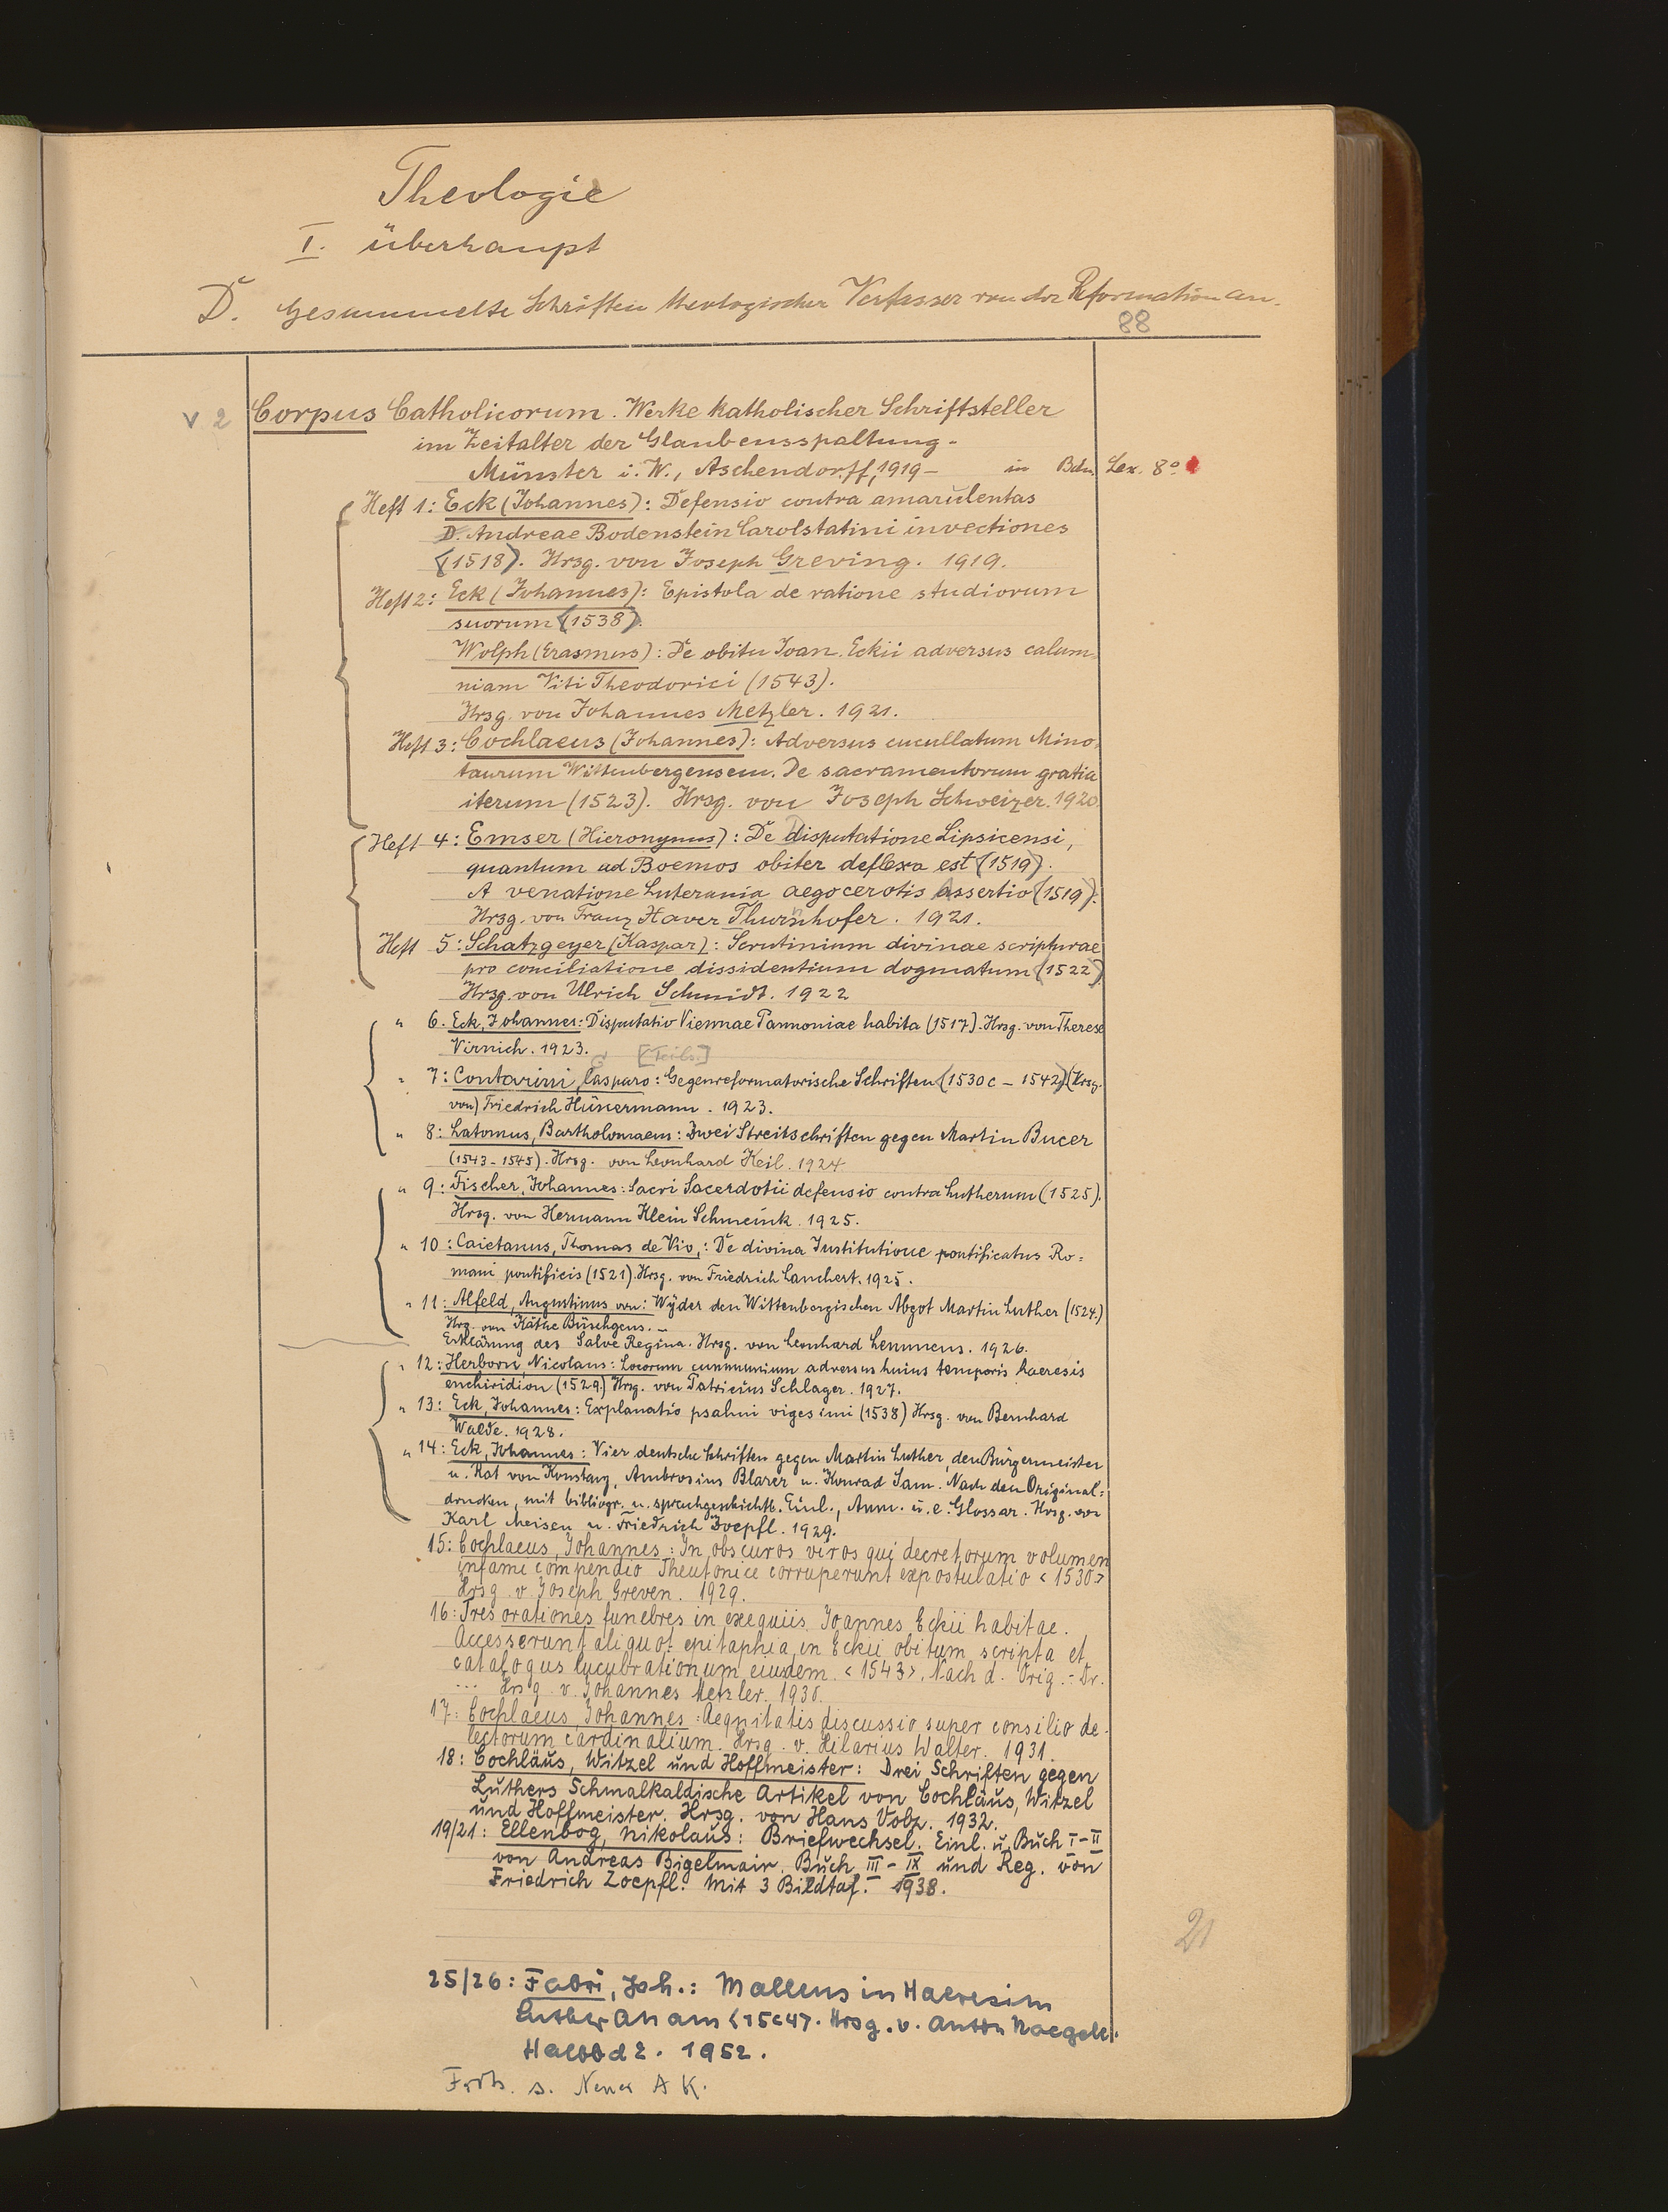 Theologie
I. überhaupt
D. Gesammelte Schriften theologischer Verfasser von der Reformation an.
88
v 2 Corpus Catholicorum. Werke katholischer Schriftsteller
im Zeitalter der Glaubensspaltung.
Münster i. W., Aschendorff, 1919– in Bdn. Lex. 8°
Heft 1: Eck (Johannes): Defensio contra amarulentas
D. Andreae Bodenstein Carolstatini invectiones
(1518). Hrsg. von Joseph Greving. 1919.
Heft 2: Eck (Johannes): Epistola de ratione studiorum
suorum (1538).
Wolph (Erasmus): De obitu Joan. Eckii adversus calum-
niam Viti Theodorici (1543).
Hrsg. von Johannes Metzler. 1921.
Heft 3: Cochlaeus (Johannes): Adversus cucullatum Mino-
taurum Wittenbergensem. De sacramentorum gratia
iterum (1523). Hrsg. von Joseph Schweizer. 1920.
Heft 4: Emser (Hieronymus): De Disputatione Lipsicensi,
quantum ad Boemos obiter deflexa est (1519).
A venatione Luterania aegocerotis assertio (1519).
Hrsg. von Franz Xaver Thurnhofer. 1921.
Heft 5: Schatzgeyer (Kaspar): Scrutinium divinae scripturae
pro conciliatione dissidentium dogmatum (1522)
Hrsg. von Ulrich Schmidt. 1922
" 6. Eck, Johannes: Disputatio Viennae Pannoniae habita (1517). Hrsg. von Therese
Virnich. 1923. [Teils.]
" 7: Contarini, Gasparo: Gegenreformatorische Schriften (1530 c – 1542) (Hrsg.
von) Friedrich Hünermann. 1923.
" 8: Latomus, Bartholomaeus: Zwei Streitschriften gegen Martin Bucer
(1543–1545). Hrsg. von Leonhard Keil. 1924
" 9: Fischer, Johannes: Sacri Sacerdotii defensio contra Lutherum (1525).
Hrsg. von Hermann Klein Schmeink. 1925.
" 10: Caietanus, Thomas de Vio,: De divina Institutione pontificatus Ro=
mani pontificis (1521). Hrsg. von Friedrich Lauchert. 1925.
" 11: Alfeld, Augustinus von: Wyder den Wittenbergischen Abgot Martin Luther (1524.)
Hrg. von Käthe Büschgens. –
Erklärung des Salve Regina. Hrsg. von Leonhard Lemmens. 1926.
" 12: Herborn, Nicolaus: Locorum communium adversus huius temporis haeresis
enchiridion (1529.) Hrsg. von Patricius Schlager. 1927.
" 13: Eck, Johannes: Explanatio psalmi vigesimi (1538) Hrsg. von Bernhard
Walde. 1928.
" 14: Eck, Johannes: Vier deutsche Schriften gegen Martin Luther, den Bürgermeister
u. Rat von Konstanz, Ambrosius Blarer u. Konrad Sam. Nach den Original=
drucken, mit bibliogr. u. sprachgeschichtl. Einl., Anm. u. e. Glossar. Hrsg. von
Karl Meisen u. Friedrich Zoepfl. 1929.
15: Cochlaeus, Johannes: In obscuros viros qui decretorum volumen
infami compendio Theutonice corruperunt expostulatio <1530>
Hrsg. v. Joseph Greven. 1929.
16: Tres orationes funebres in exequiis Joannes Eckii habitae.
Accesserunt aliquot epitaphia in Eckii obitum scripta et
catalogus lucubrationum eiusdem <1543>. Nach d. Orig.-Dr.
... Hrsg. v. Johannes Metzler. 1930.
17: Cochlaeus, Johannes: Aequitatis discussio super consilio de-
lectorum cardinalium. Hrsg. v. Hilarius Walter. 1931.
18: Cochläus, Witzel und Hoffmeister: Drei Schriften gegen
Luthers Schmalkaldische Artikel von Cochläus, Witzel
und Hoffmeister. Hrsg. von Hans Volz. 1932.
19/21: Ellenbog, Nikolaus: Briefwechsel. Einl. u. Buch I–II
von Andreas Bigelmair. Buch III–IX und Reg. von
Friedrich Zoepfl. Mit 3 Bildtaf. 1938.
21
25/26: Fabri, Joh.: Malleus in Haeresim
Lutheranam <15247. Hrsg. v. Anton Naegele.
Halbbd 2. 1952.
Forts. s. Neuer A K.